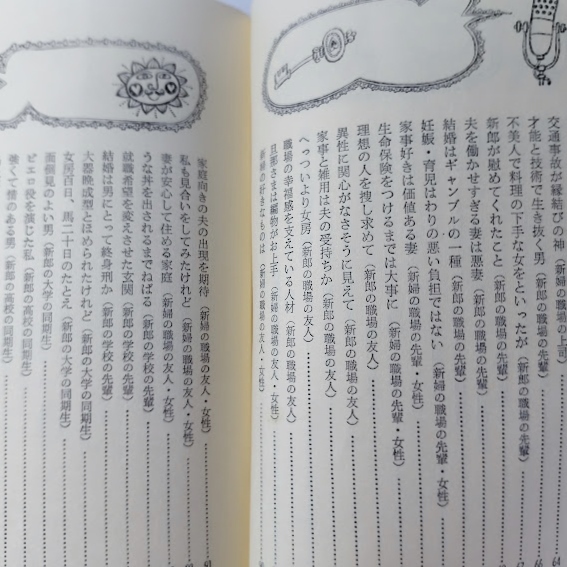 交通事故が縁結びの神（新婦の職場の上司）
才能と技術で生き抜く男（新郎の職場の先輩）
不美人で料理の下手な女をといったが（新郎の職場の先輩）
新郎が慰めてくれたこと（新郎の職場の先輩）
夫を働かせすぎる妻は悪妻（新郎の職場の先輩）
結婚はギャンブルの一種（新郎の職場の先輩）
妊娠・育児はわりの悪い負担ではない（新婦の職場の先輩・女性）
家事好きは価値ある妻（新婦の職場の先輩・女性）
生命保険をつけるまでは大事に（新婦の職場の先輩・女性）
理想の人を捜し求めて（新郎の職場の友人）
異性に関心がなさそうに見えて（新郎の職場の友人）
家事と雑用は夫の受持ちか（新郎の職場の友人）
へっついより女房（新郎の職場の友人）
職場の幸福感を支えている人材（新郎の職場の友人）
旦那さまは編物がお上手（新婦の職場の友人・女性）
新婦の好きなものは（新婦の職場の友人・女性）
家庭向きの夫の出現を期待（新婦の職場の友人・女性）
私も見合いをしてみたけれど（新婦の職場の友人・女性）
妻が安心して住める家庭（新婦の職場の友人・女性）
うな丼を出されるまでねばる（新郎の学校の先輩）
就職希望を変えさせた玄関（新郎の学校の先輩）
結婚は男にとって終身刑か（新郎の学校の先輩）
大器晩成型とほめられたけれど（新郎の大学の同期生）
女房百日、馬二十日のたとえ（新郎の大学の同期生）
面倒見のよい男（新郎の大学の同期生）
ピエロ役を演じた私（新郎の高校の同期生）
強くて情のある男（新郎の高校の同期生）